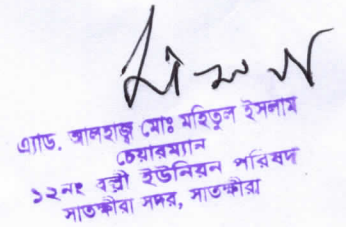 এ্যাড. আলহাজ্ব মোঃ মহিতুল ইসলাম
চেয়ারম্যান
১২নং বল্লী ইউনিয়ন পরিষদ
সাতক্ষীরা সদর, সাতক্ষীরা